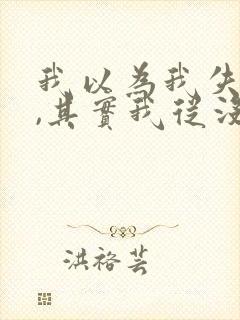 我以為我失
,其實我從沒
洪裕芸